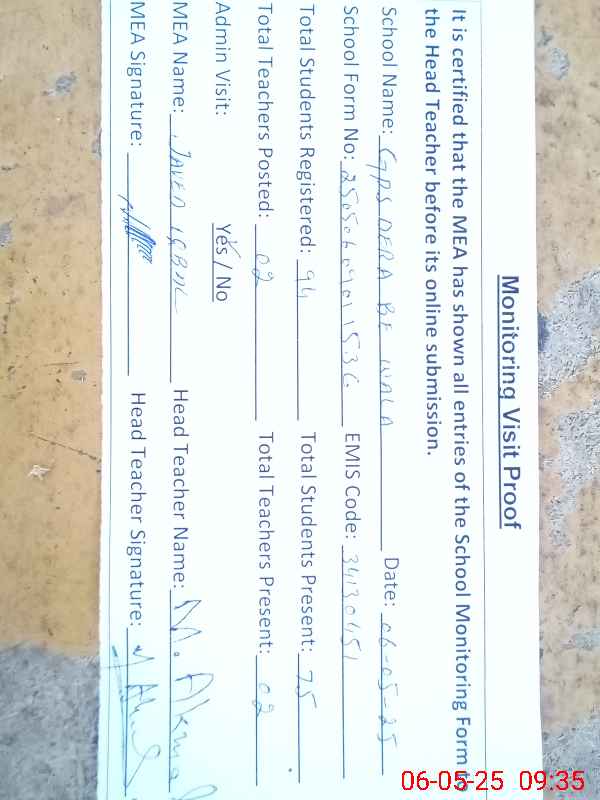 Monitoring Visit Proof
It is certified that the MEA has shown all entries of the School Monitoring Form to
the Head Teacher before its online submission.
School Name: GPS DERA BE WALA Date: 06-05-25
School Form No: EMIS Code: 34130451
Total Students Registered: 94 Total Students Present: 75
Total Teachers Posted: 02 Total Teachers Present: 02
Admin Visit: Yes / No
MEA Name: JAVED IQBAL Head Teacher Name: M. Akmal
MEA Signature: Head Teacher Signature:
06-05-25 09:35